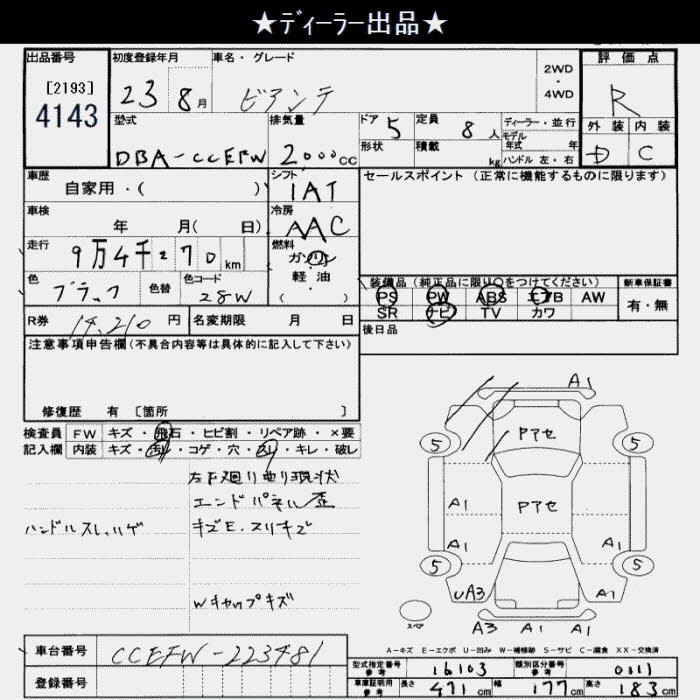 ★ディーラー出品★
出品番号 初度登録年月 車名・グレード 2WD ・ 4WD 評価点
[2193] 4143 23 8月 ビアンテ R
型式 排気量 ドア 5 定員 8人 ディーラー・並行 外装 内装
DBA-CCEFW 2,000cc 形状 積載 kg モデル年式 年 D C
ハンドル 左・右
車歴 シフト セールスポイント (正常に機能するものに限ります)
自家用・( ) IAT
車検 冷房
年 月( 日) AAC
走行 燃料
9万4千270km ガソリン
軽・油
色 色替 色コード ( )
ブラック 28W
装備品(純正品に限り○をつけてください) 新車保証書
PS PW ABS エアB AW 有・無
SR ナビ TV カワ
R券 14,210円 名変期限 月 日 後日品
注意事項申告欄(不具合内容等は具体的に記入して下さい)
修復歴 有 [箇所 ]
検査員 FW キズ・飛石・ヒビ割・リペア跡・×要
記入欄 内装 キズ・汚れ・コゲ・穴・スレ・キレ・破し
左下廻り曲り現状
エンドパネル歪
ハンドルスレ、ハゲ キズE、スリキズ
Wキャップキズ
A1
5 Pアセ 5
A1 Pアセ
A1 A1
5 5
UA3 A1
スペア A3 A1 A1
A-キズ E-エクボ U-凹み W-補修跡 S-サビ C-腐食 XX-交換済
車台番号 CCEFW-223481
登録番号
型式指定番号 参考 16103 類別区分番号 参考 0111
車庫証明用 参考 長さ 471cm 幅 177cm 高さ 183cm